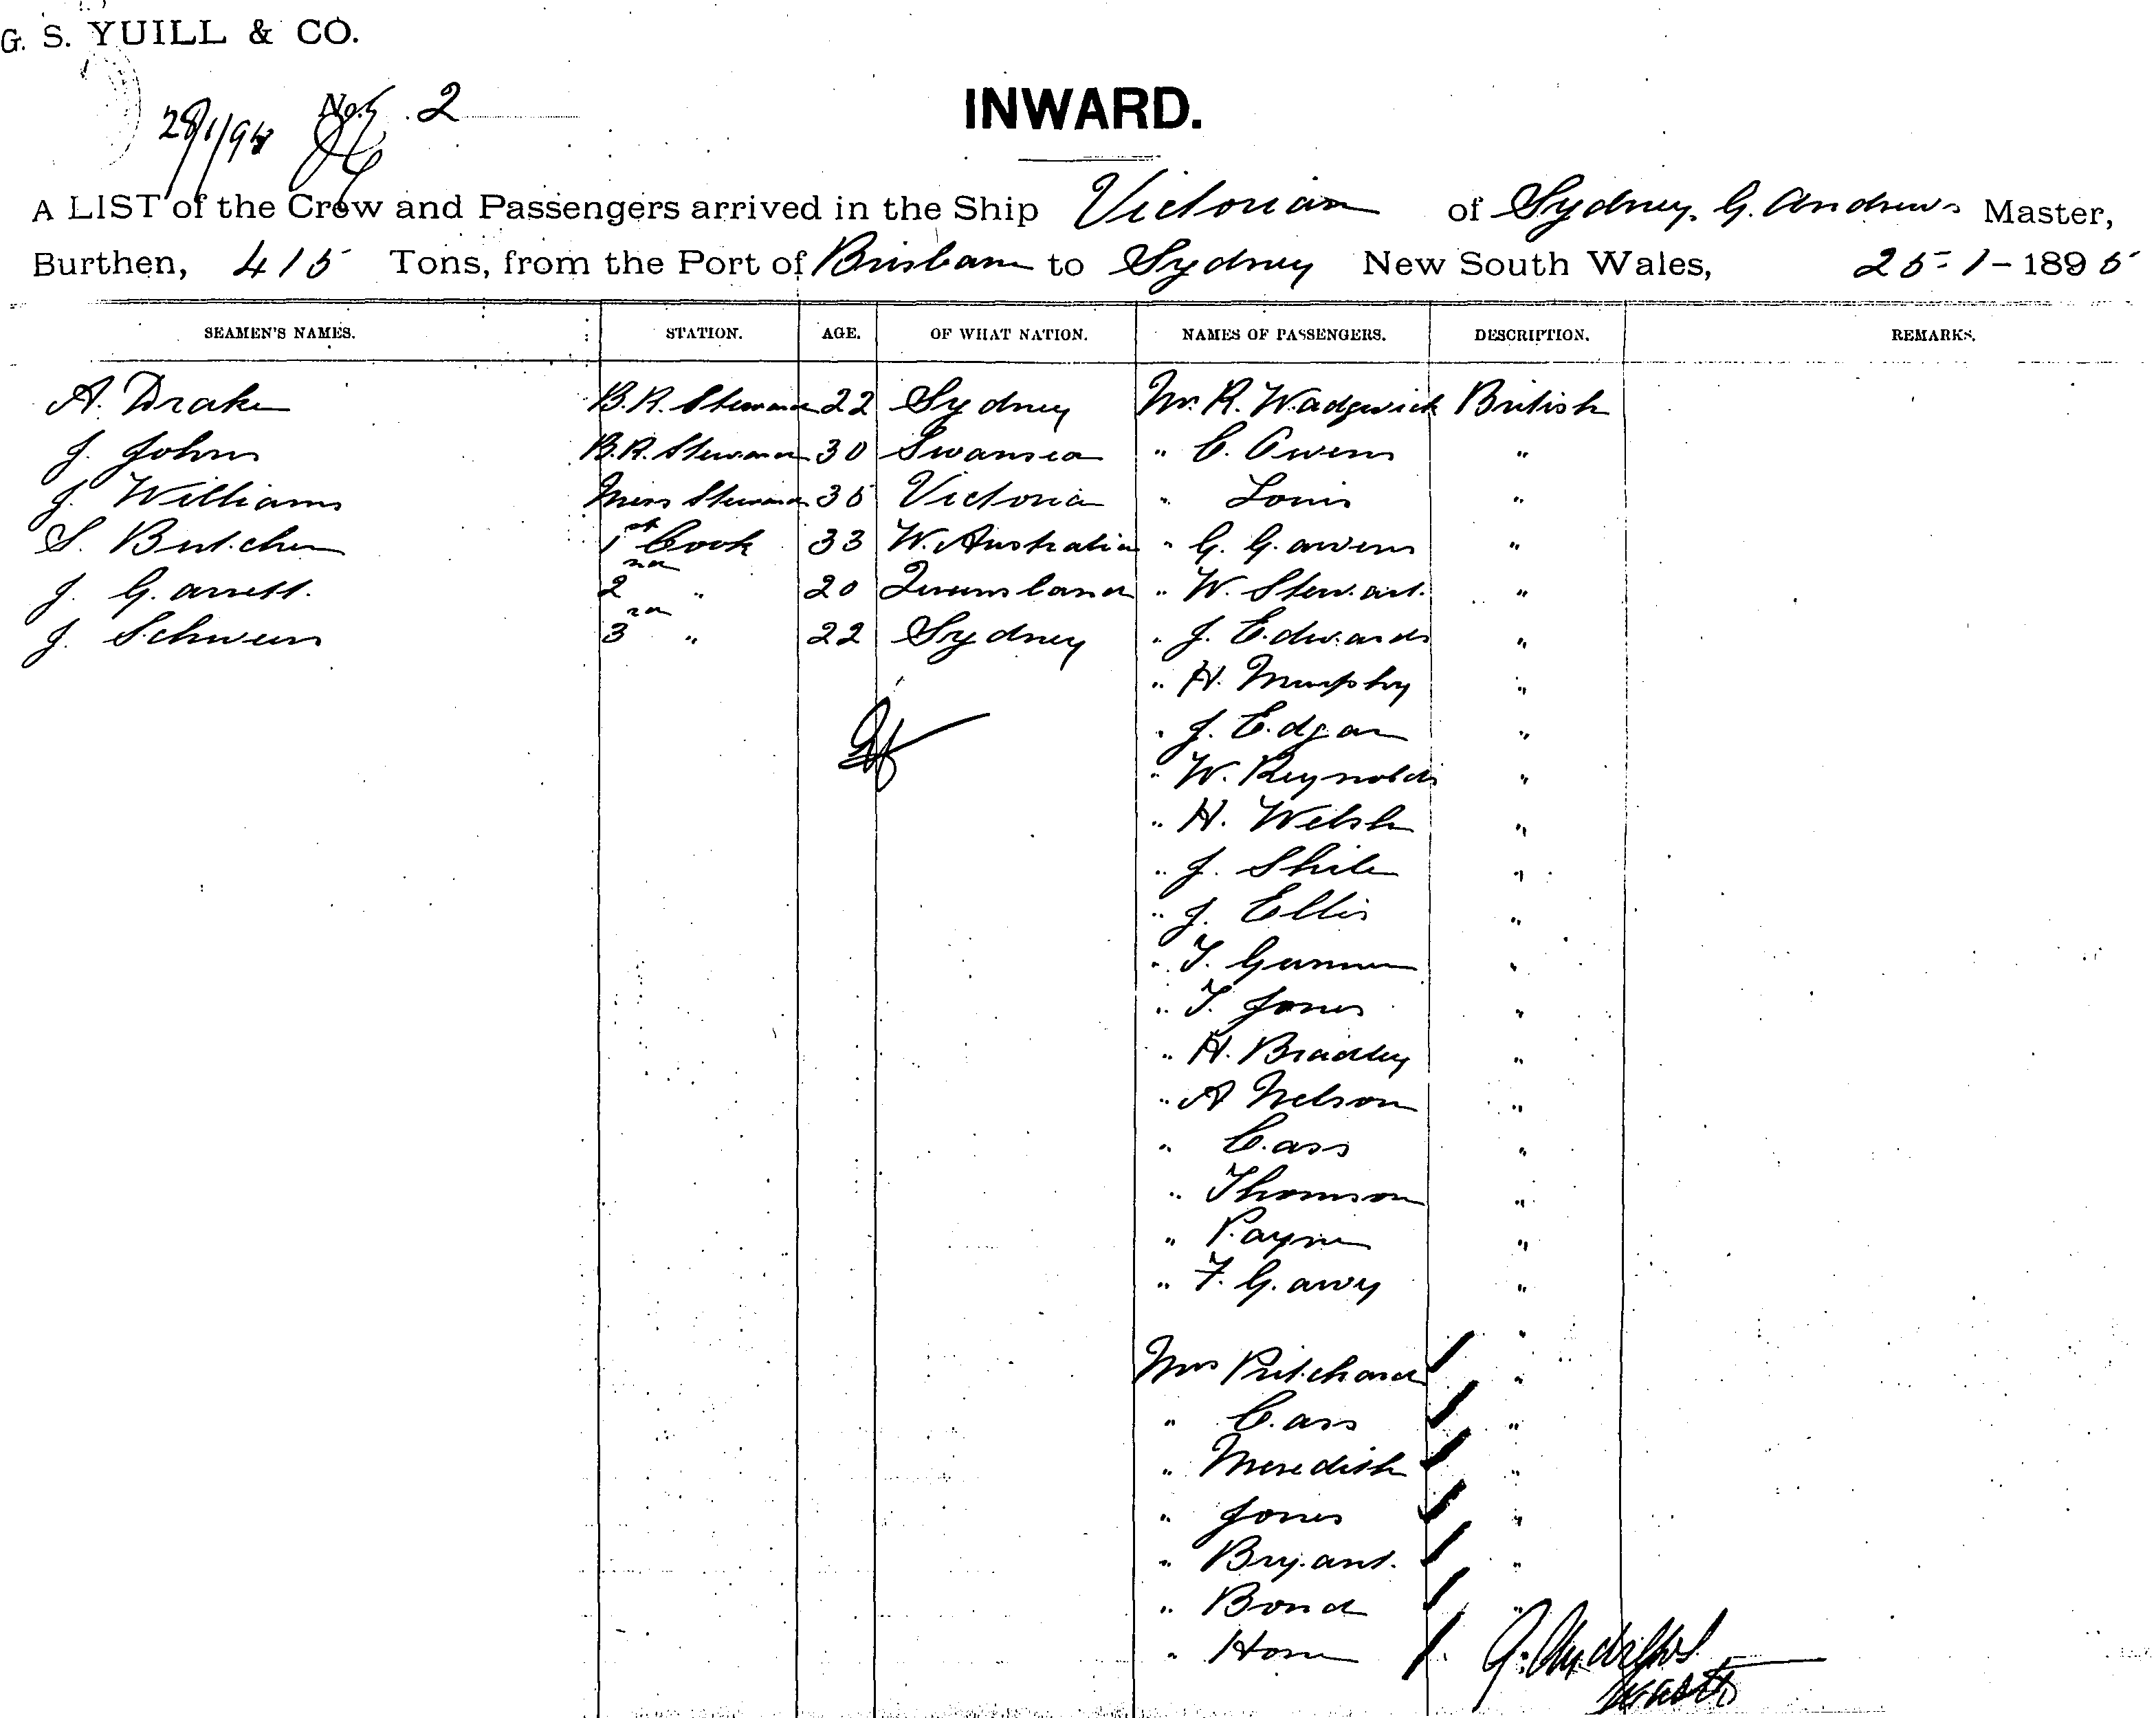 G. S. YUILL & CO.
28/1/95 No. 2
INWARD.
A LIST of the Crew and Passengers arrived in the Ship Victorian of Sydney, G. Andrews Master,
Burthen, 415 Tons, from the Port of Brisbane to Sydney New South Wales, 25-1-1895
SEAMEN'S NAMES. STATION. AGE. OF WHAT NATION. NAMES OF PASSENGERS. DESCRIPTION. REMARKS.
A. Drake B.R. Steward 22 Sydney Mr. R. Wadgwick British
J. Johns B.R. Steward 30 Swansea " C. Owens "
J. Williams Mess Steward 35 Victoria " Louis "
S. Butcher 1st Cook 33 W. Australia " G. Gavens "
J. Garrett 2nd " 20 Queensland " W. Stewart "
J. Schweers 3rd " 22 Sydney " J. Edwards "
" H. Murphy "
" J. Edgar "
" W. Reynolds "
" H. Welsh "
" J. "
" J. Ellis "
" T. "
" T. Jones "
" H. Bradley "
" A Nelson "
" Cass "
" Thomson "
" Payne "
" F. "
"
Mrs Pritchard "
" Cass "
" Meredith "
" Jones "
" Bryant "
" Bond "
" Horn
G. Andrews
Master